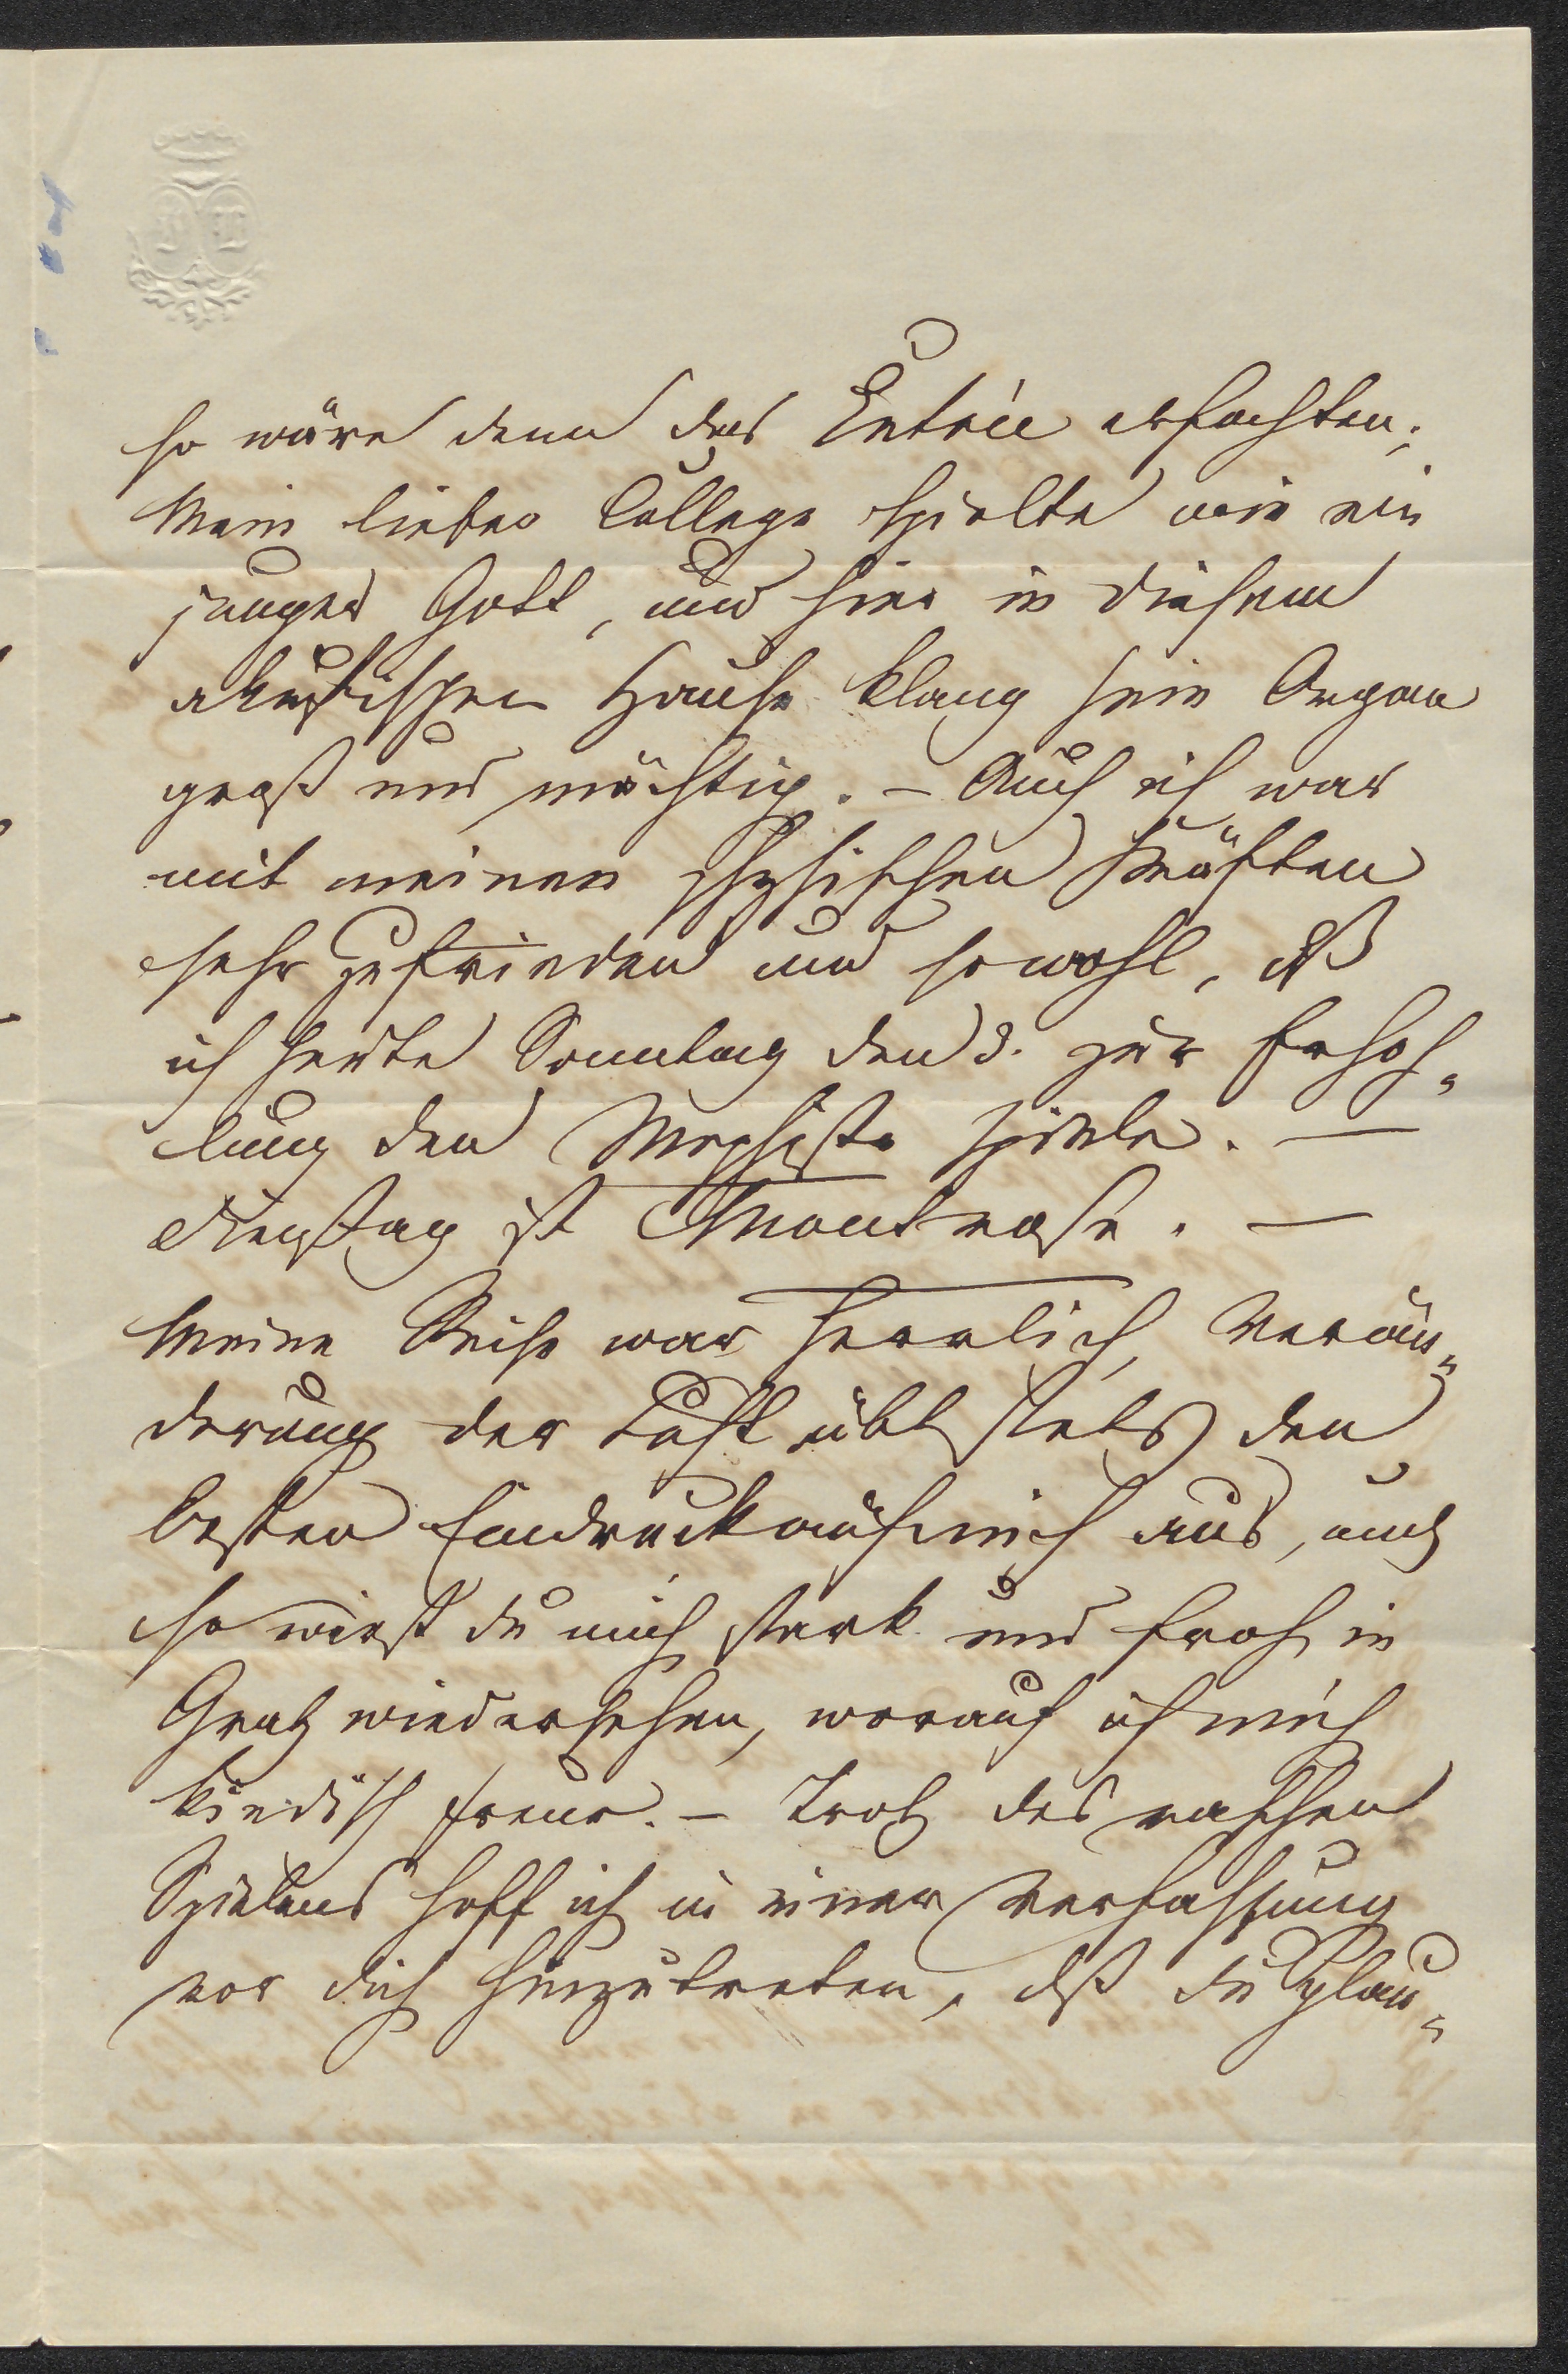 so wäre denn das Entrée erfochten;
Mein lieber College spielte wie ein
junger Gott, und hier in diesem
akustischen Hause klang sein Organ
groß und mächtig. – Auch ich war
mit meinen physischen Kräften
sehr zufrieden und so wohl, dß
ich heute Sonntag den 3. zur Erhoh=
lung den Mephisto spiele. —
Dienstag ist Montrose. —
Meine Reise war herrlich, Verän=
derung der Luft übt stets den
besten Eindruck auf mich aus, und
so wirst du mich stark und froh in
Gratz wiedersehen, worauf ich mich
kindisch freue. – Trotz des raschen
Spielens hoff ich in einer Verfassung
vor dich hinzutreten, dß du glau=